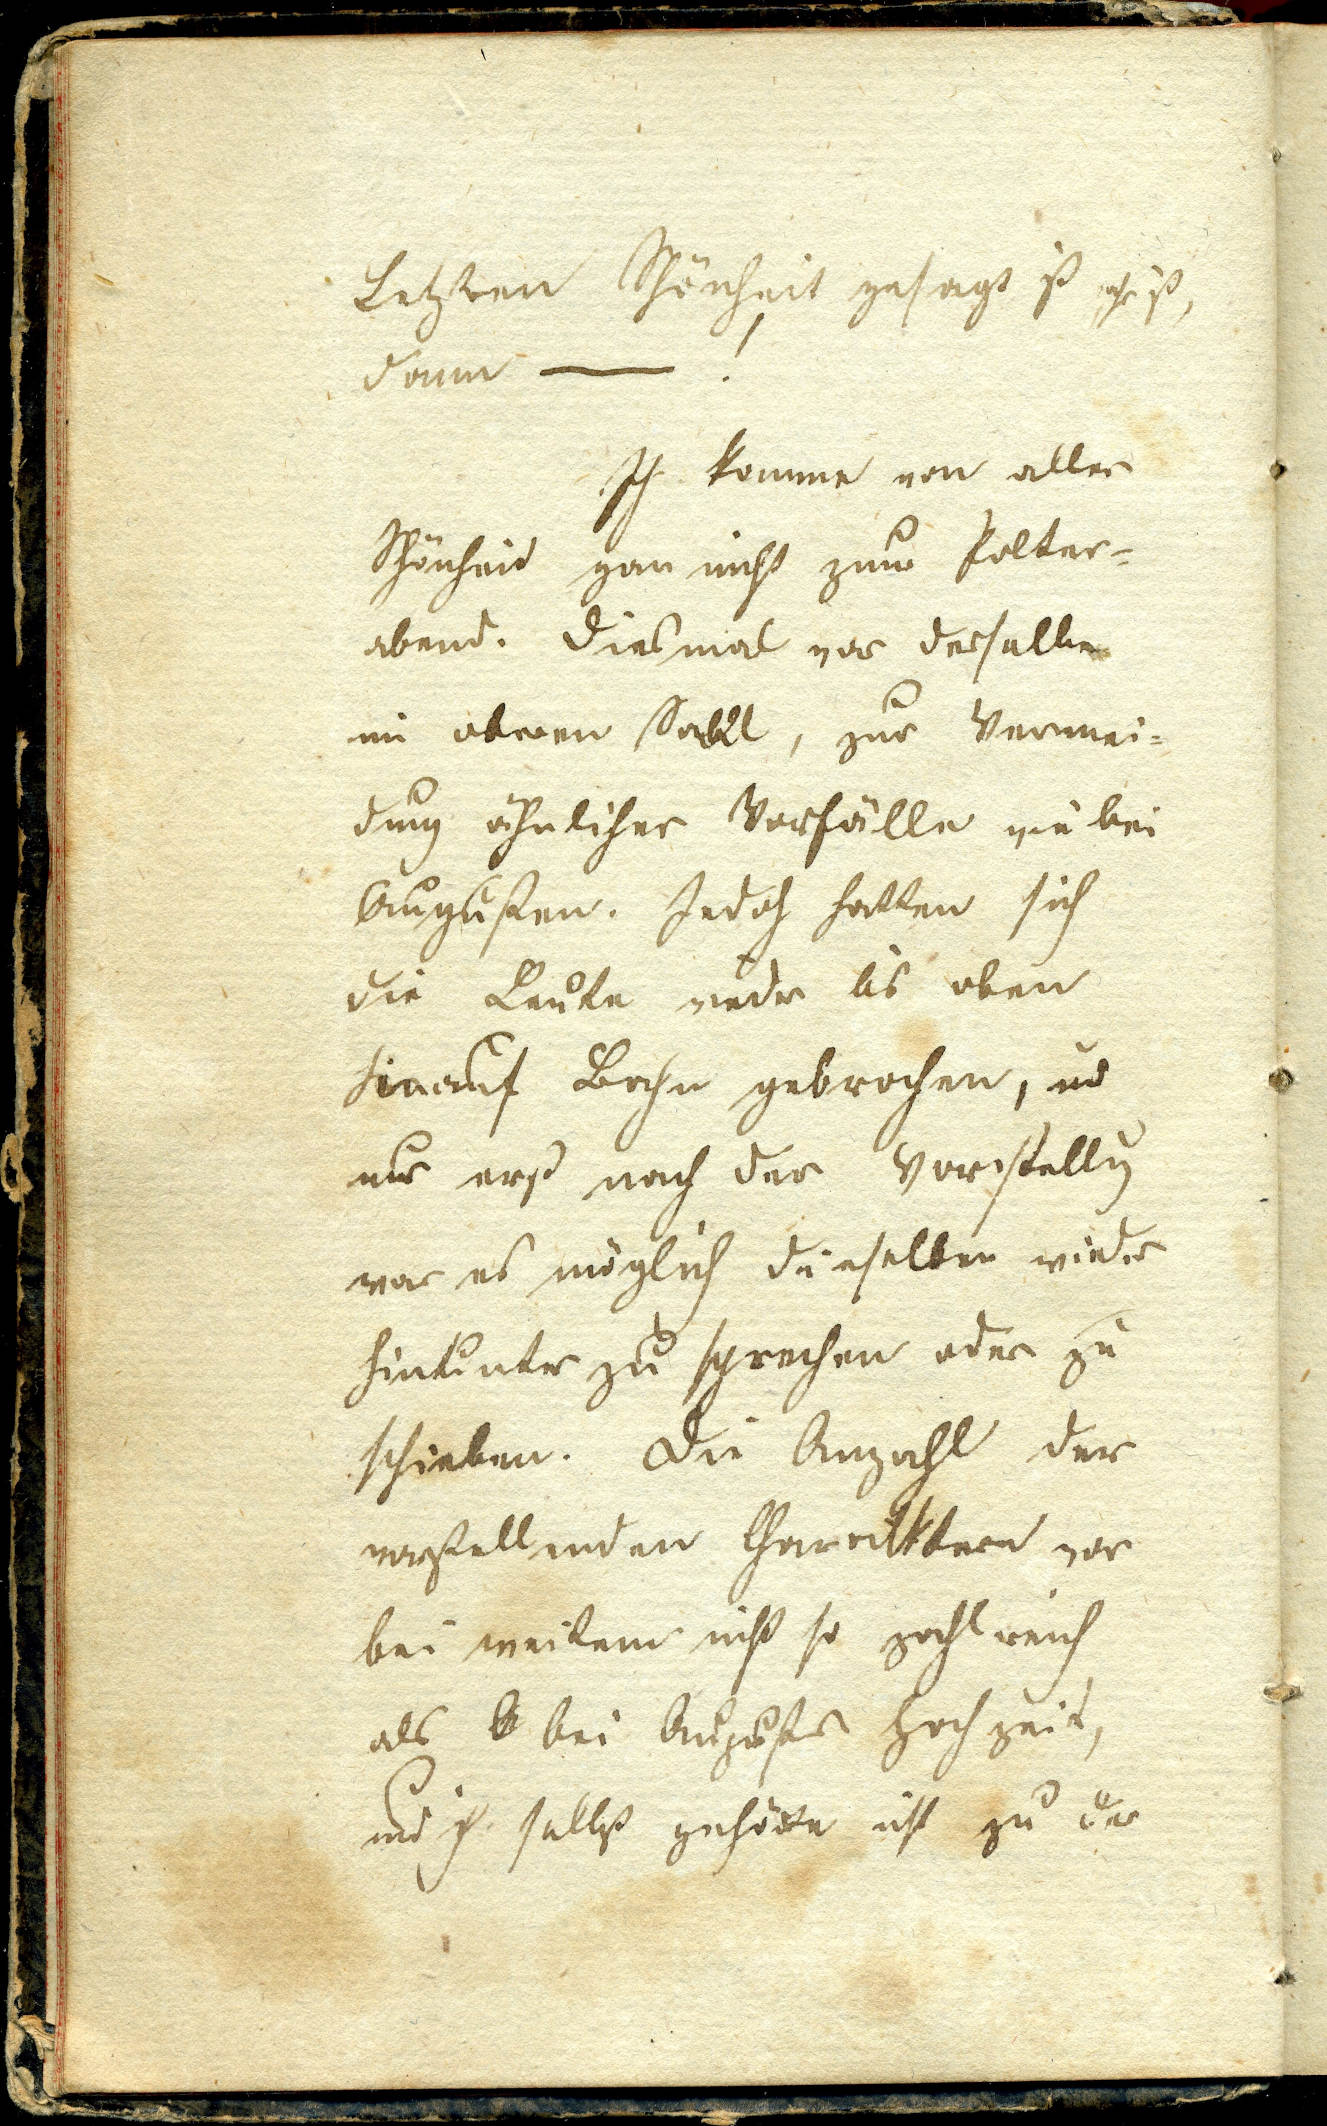 Letzten Schönheit gesagt ist
dann — !
Ich komme von aller
Schönheit gar nicht zum Polter-
abend. Diesmal war derselbe
im oberen Saal, zur Vermei-
dung ähnlicher Vorfälle wie bei
Augusten. Jedoch hatten sich
die Leute wieder bis oben
hinauf Bahn gebrochen, und
nur erst nach der Vorstellung
war es möglich dieselben wieder
hinunter zu sprechen oder zu
schieben. Die Anzahl der
vorstellenden Charaktere war
bei weitem nicht so zahlreich
als bei Augusts Hochzeit,
und ich selbst gehörte nicht zu der